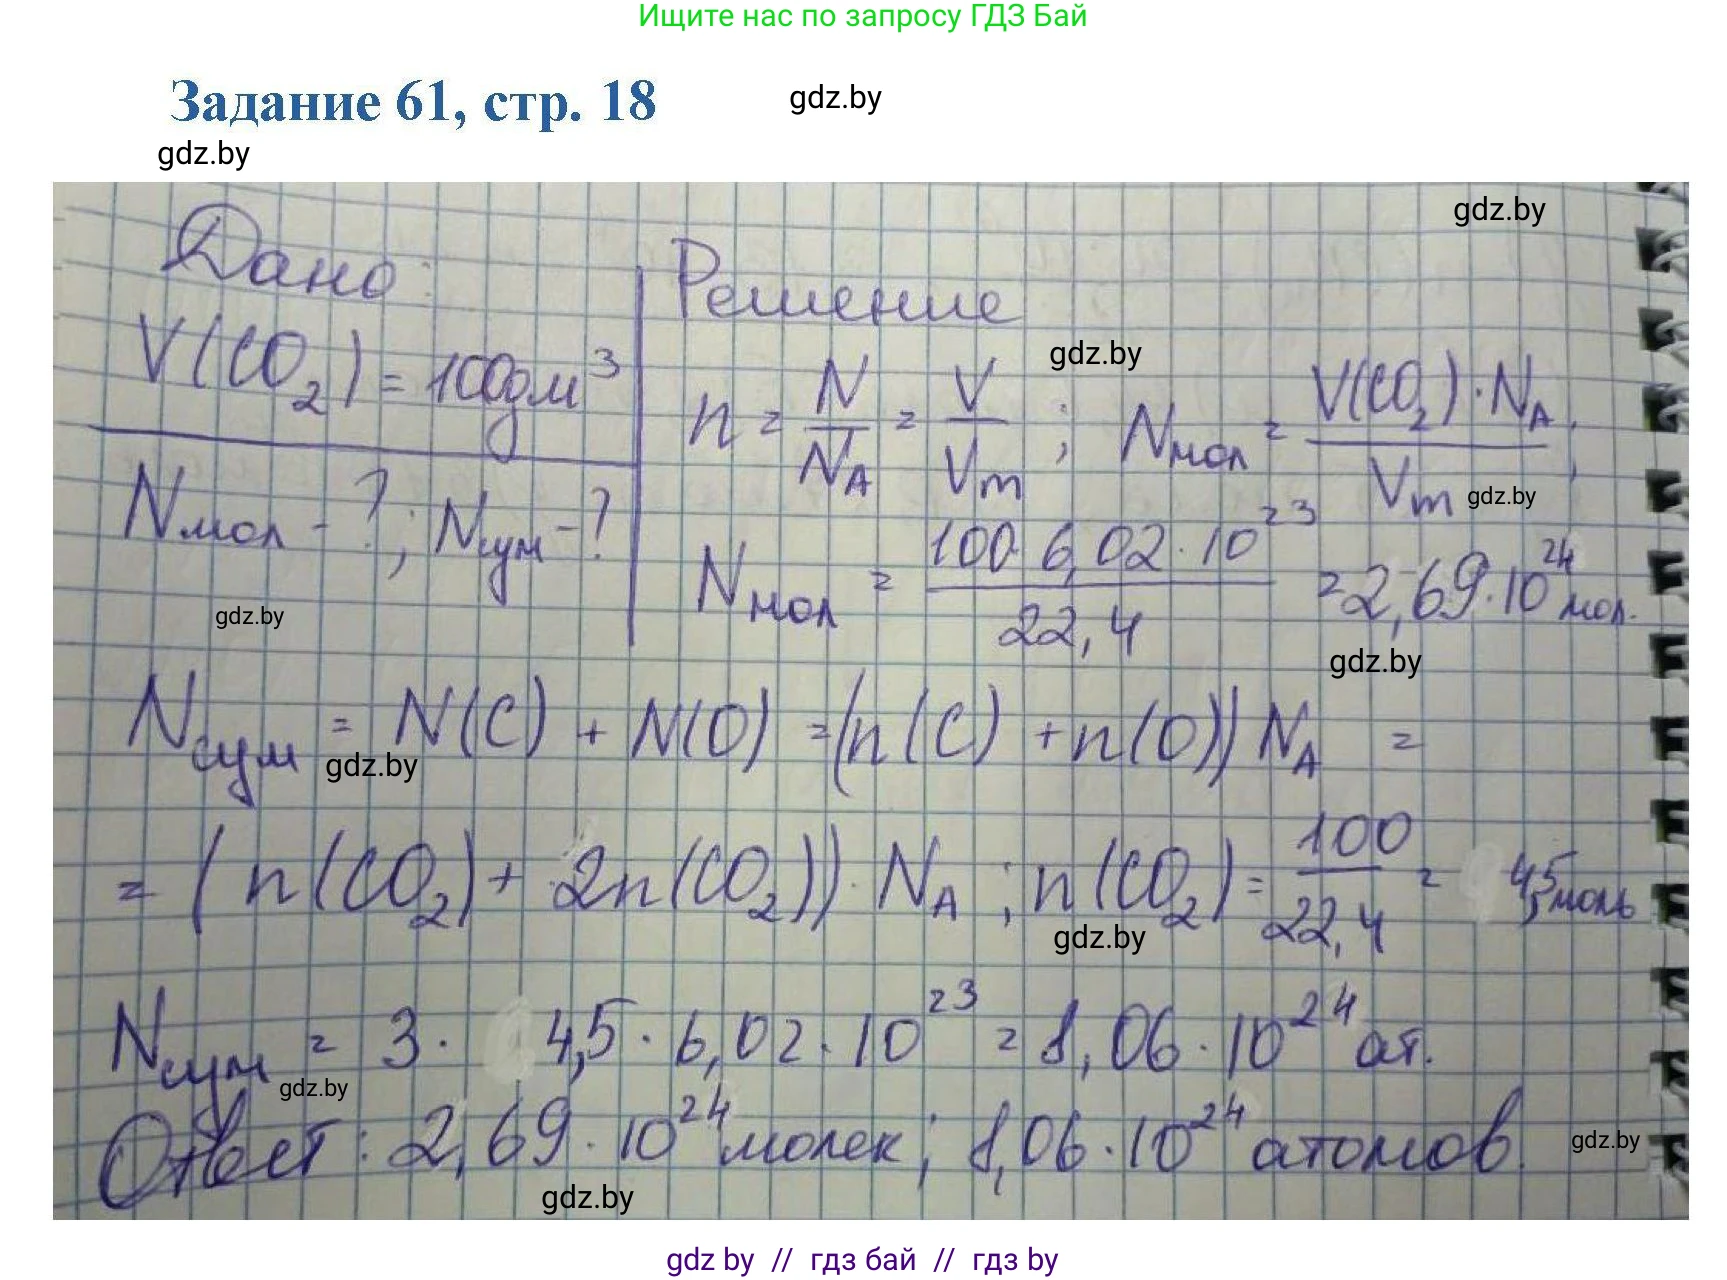 Ищите нас по запросу ГДЗ Бай
Задание 61, стр. 18
gdz.by
gdz.by
gdz.by
Дано:
V(CO₂) = 100дм³
Nмол - ?; Nсум - ?
gdz.by
Решение
gdz.by
n = N/N_A = V/Vm ; Nмол = V(CO₂)·N_A/Vm ;
gdz.by
Nмол = 100·6,02·10²³/22,4 = 2,69·10²⁴ мол.
gdz.by
Nсум = N(C) + N(O) = (n(C) + n(O)) N_A =
gdz.by
= (n(CO₂) + 2n(CO₂))·N_A ; n(CO₂) = 100/22,4 = 4,5 моль
gdz.by
Nсум = 3 · 4,5 · 6,02 · 10²³ = 8,06 · 10²⁴ ат.
gdz.by
Ответ: 2,69 · 10²⁴ молек; 8,06 · 10²⁴ атомов.
gdz.by
gdz.by
gdz by // гдз бай // гдз by